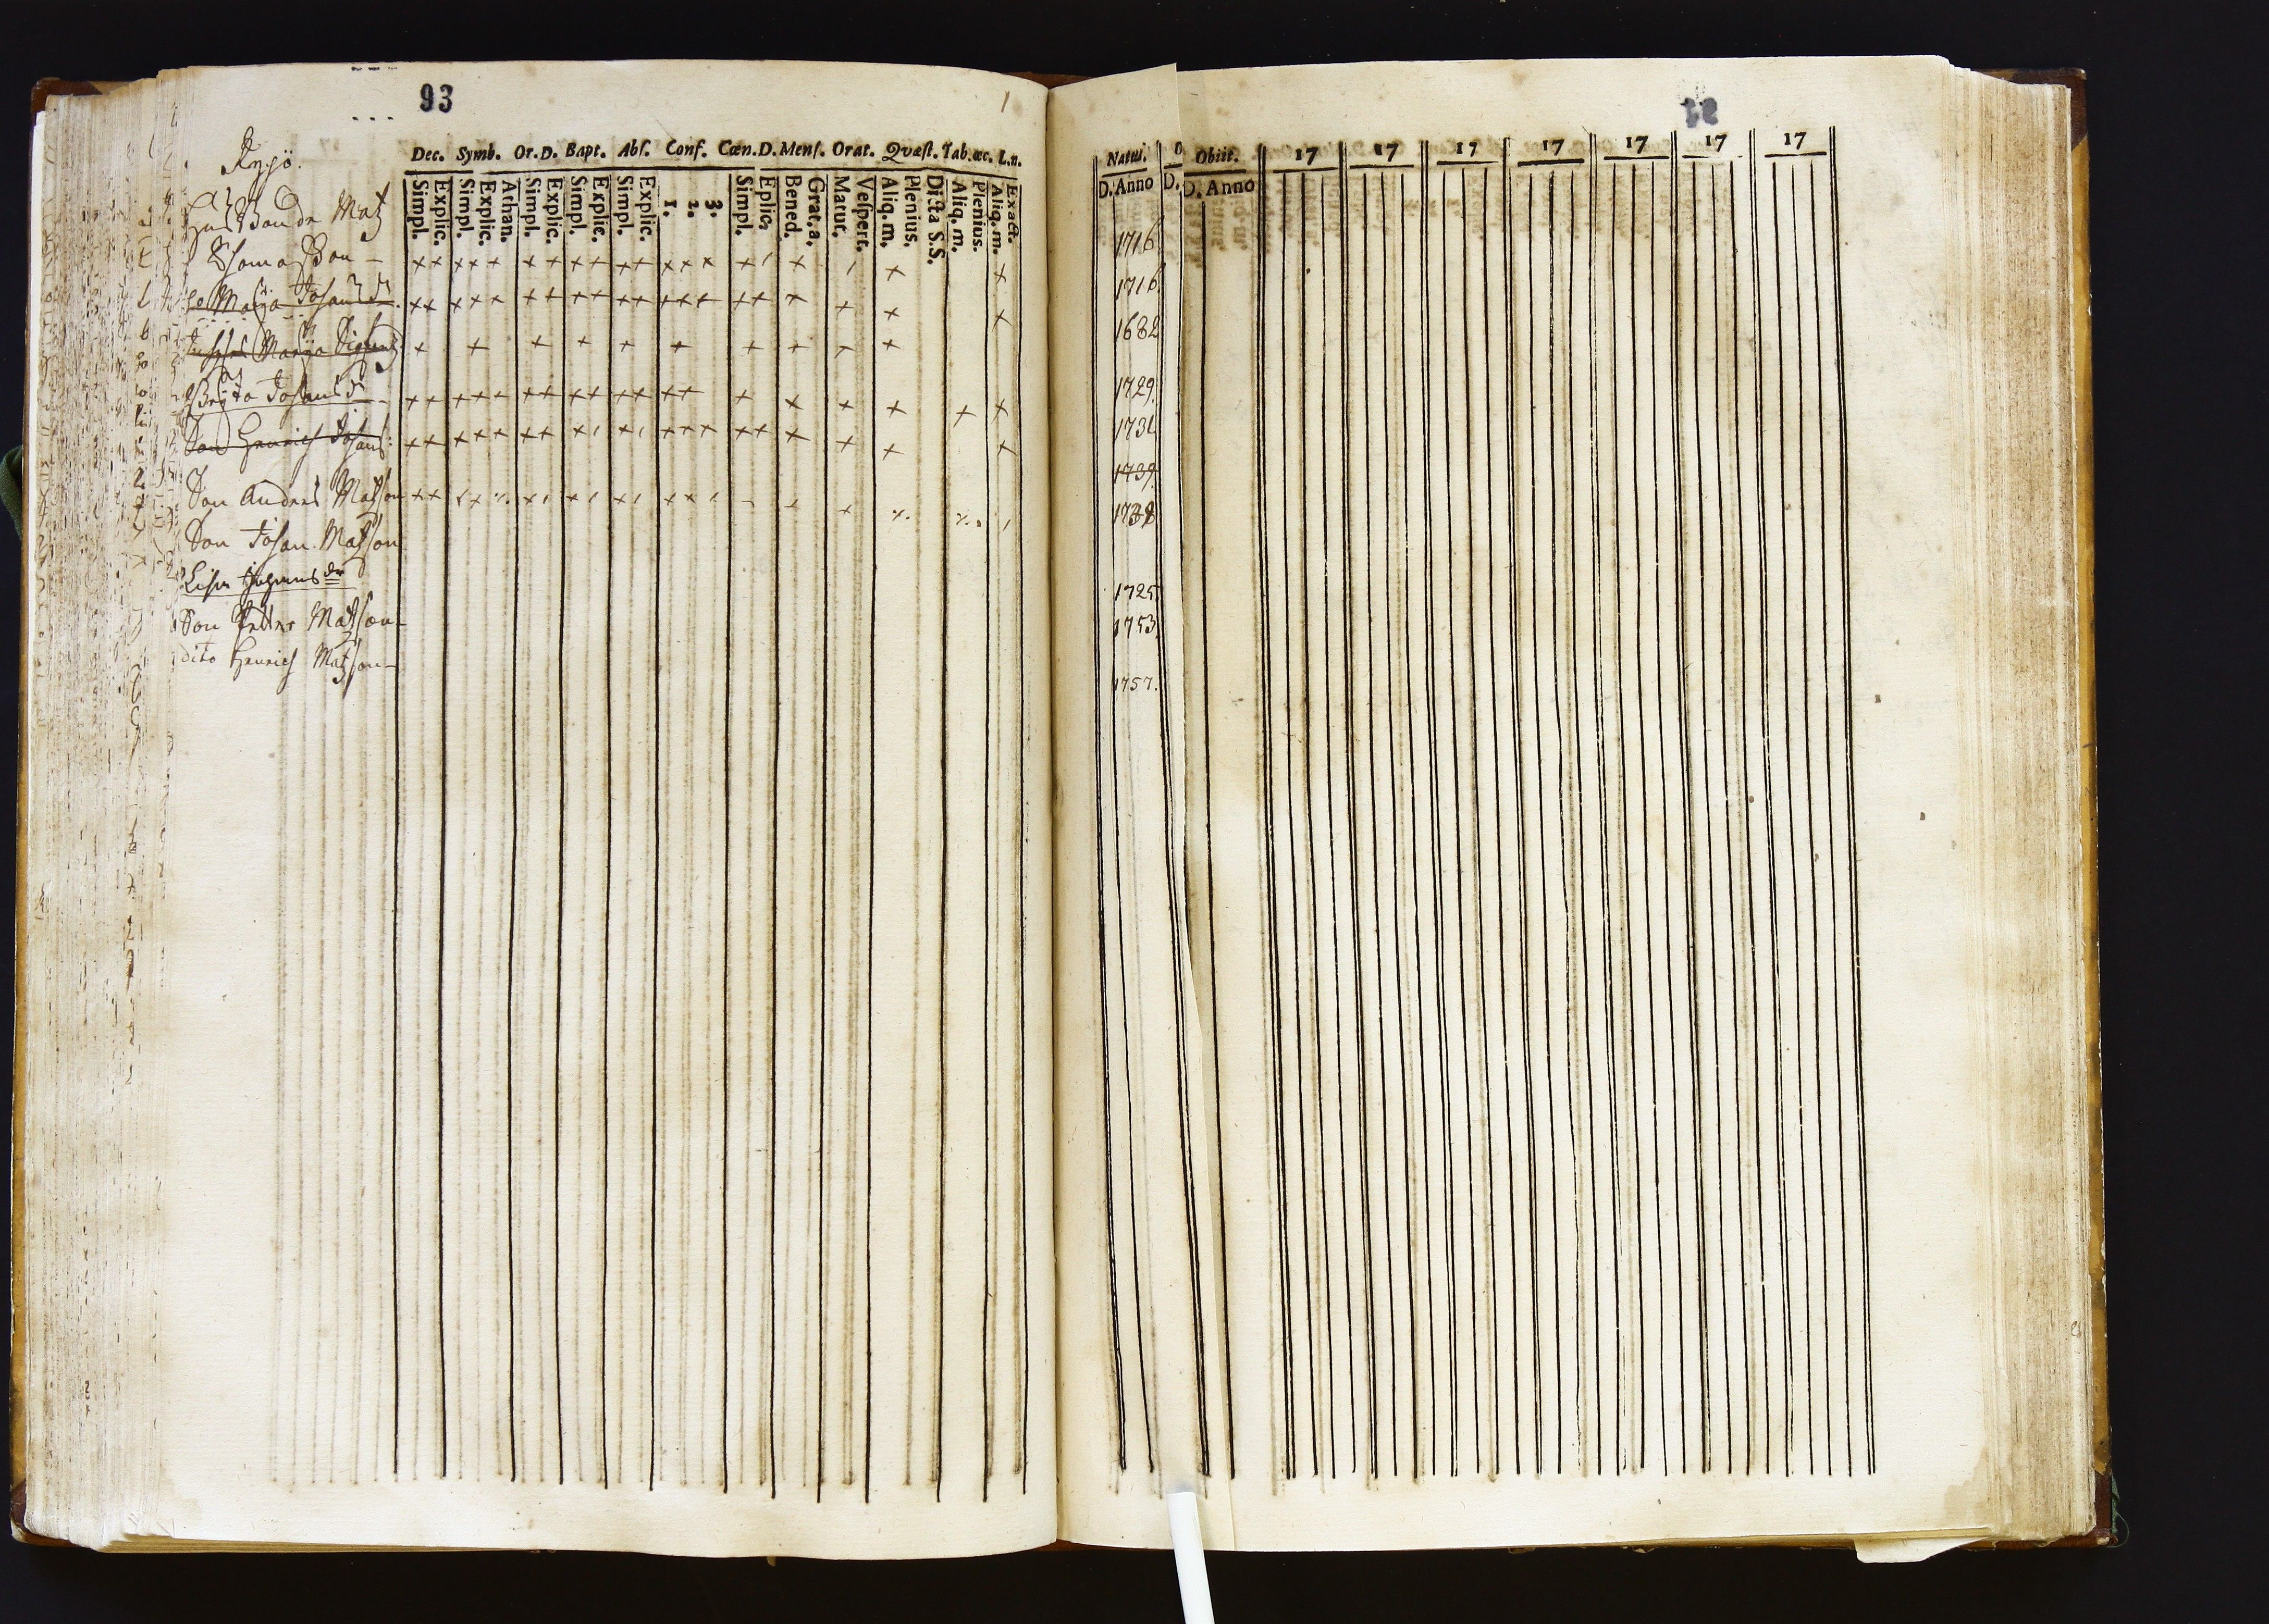 93
1
Dec. Symb. Or.D. Bapt. Abs. Conf. Cœn.D. Mens. Orat. Qvæst. Tab.œc. L.n.
Simpl. Explic. Simpl. Explic. Athan. Simpl. Explic. Simpl. Explic. Simpl. Explic. 1. 2. 3. Simpl. Eplic. Bened. Grat.a. Matut. Vespert. Aliq.m. Plenius. Dicta S.S. Aliq.m. Plenius. Aliq.m. Exact.
Bonde Matz
Thomasson
Maria Johansdr
Maria
Brita Johansdr
Son Henrich Johans
Son Anders Matsson
Son Johan Matsson
Lisa Johansdr
Son Petter Matsson
dito Henrich Matsson
Natus. Obiit. 17 17 17 17 17 17 17
D. Anno D. D. Anno
1716
1716
1682
1729
1731
1739
1738
1725
1753
1757.